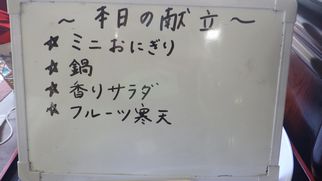 ～本日の献立～
☆ミニおにぎり
☆鍋
☆香りサラダ
☆フルーツ寒天